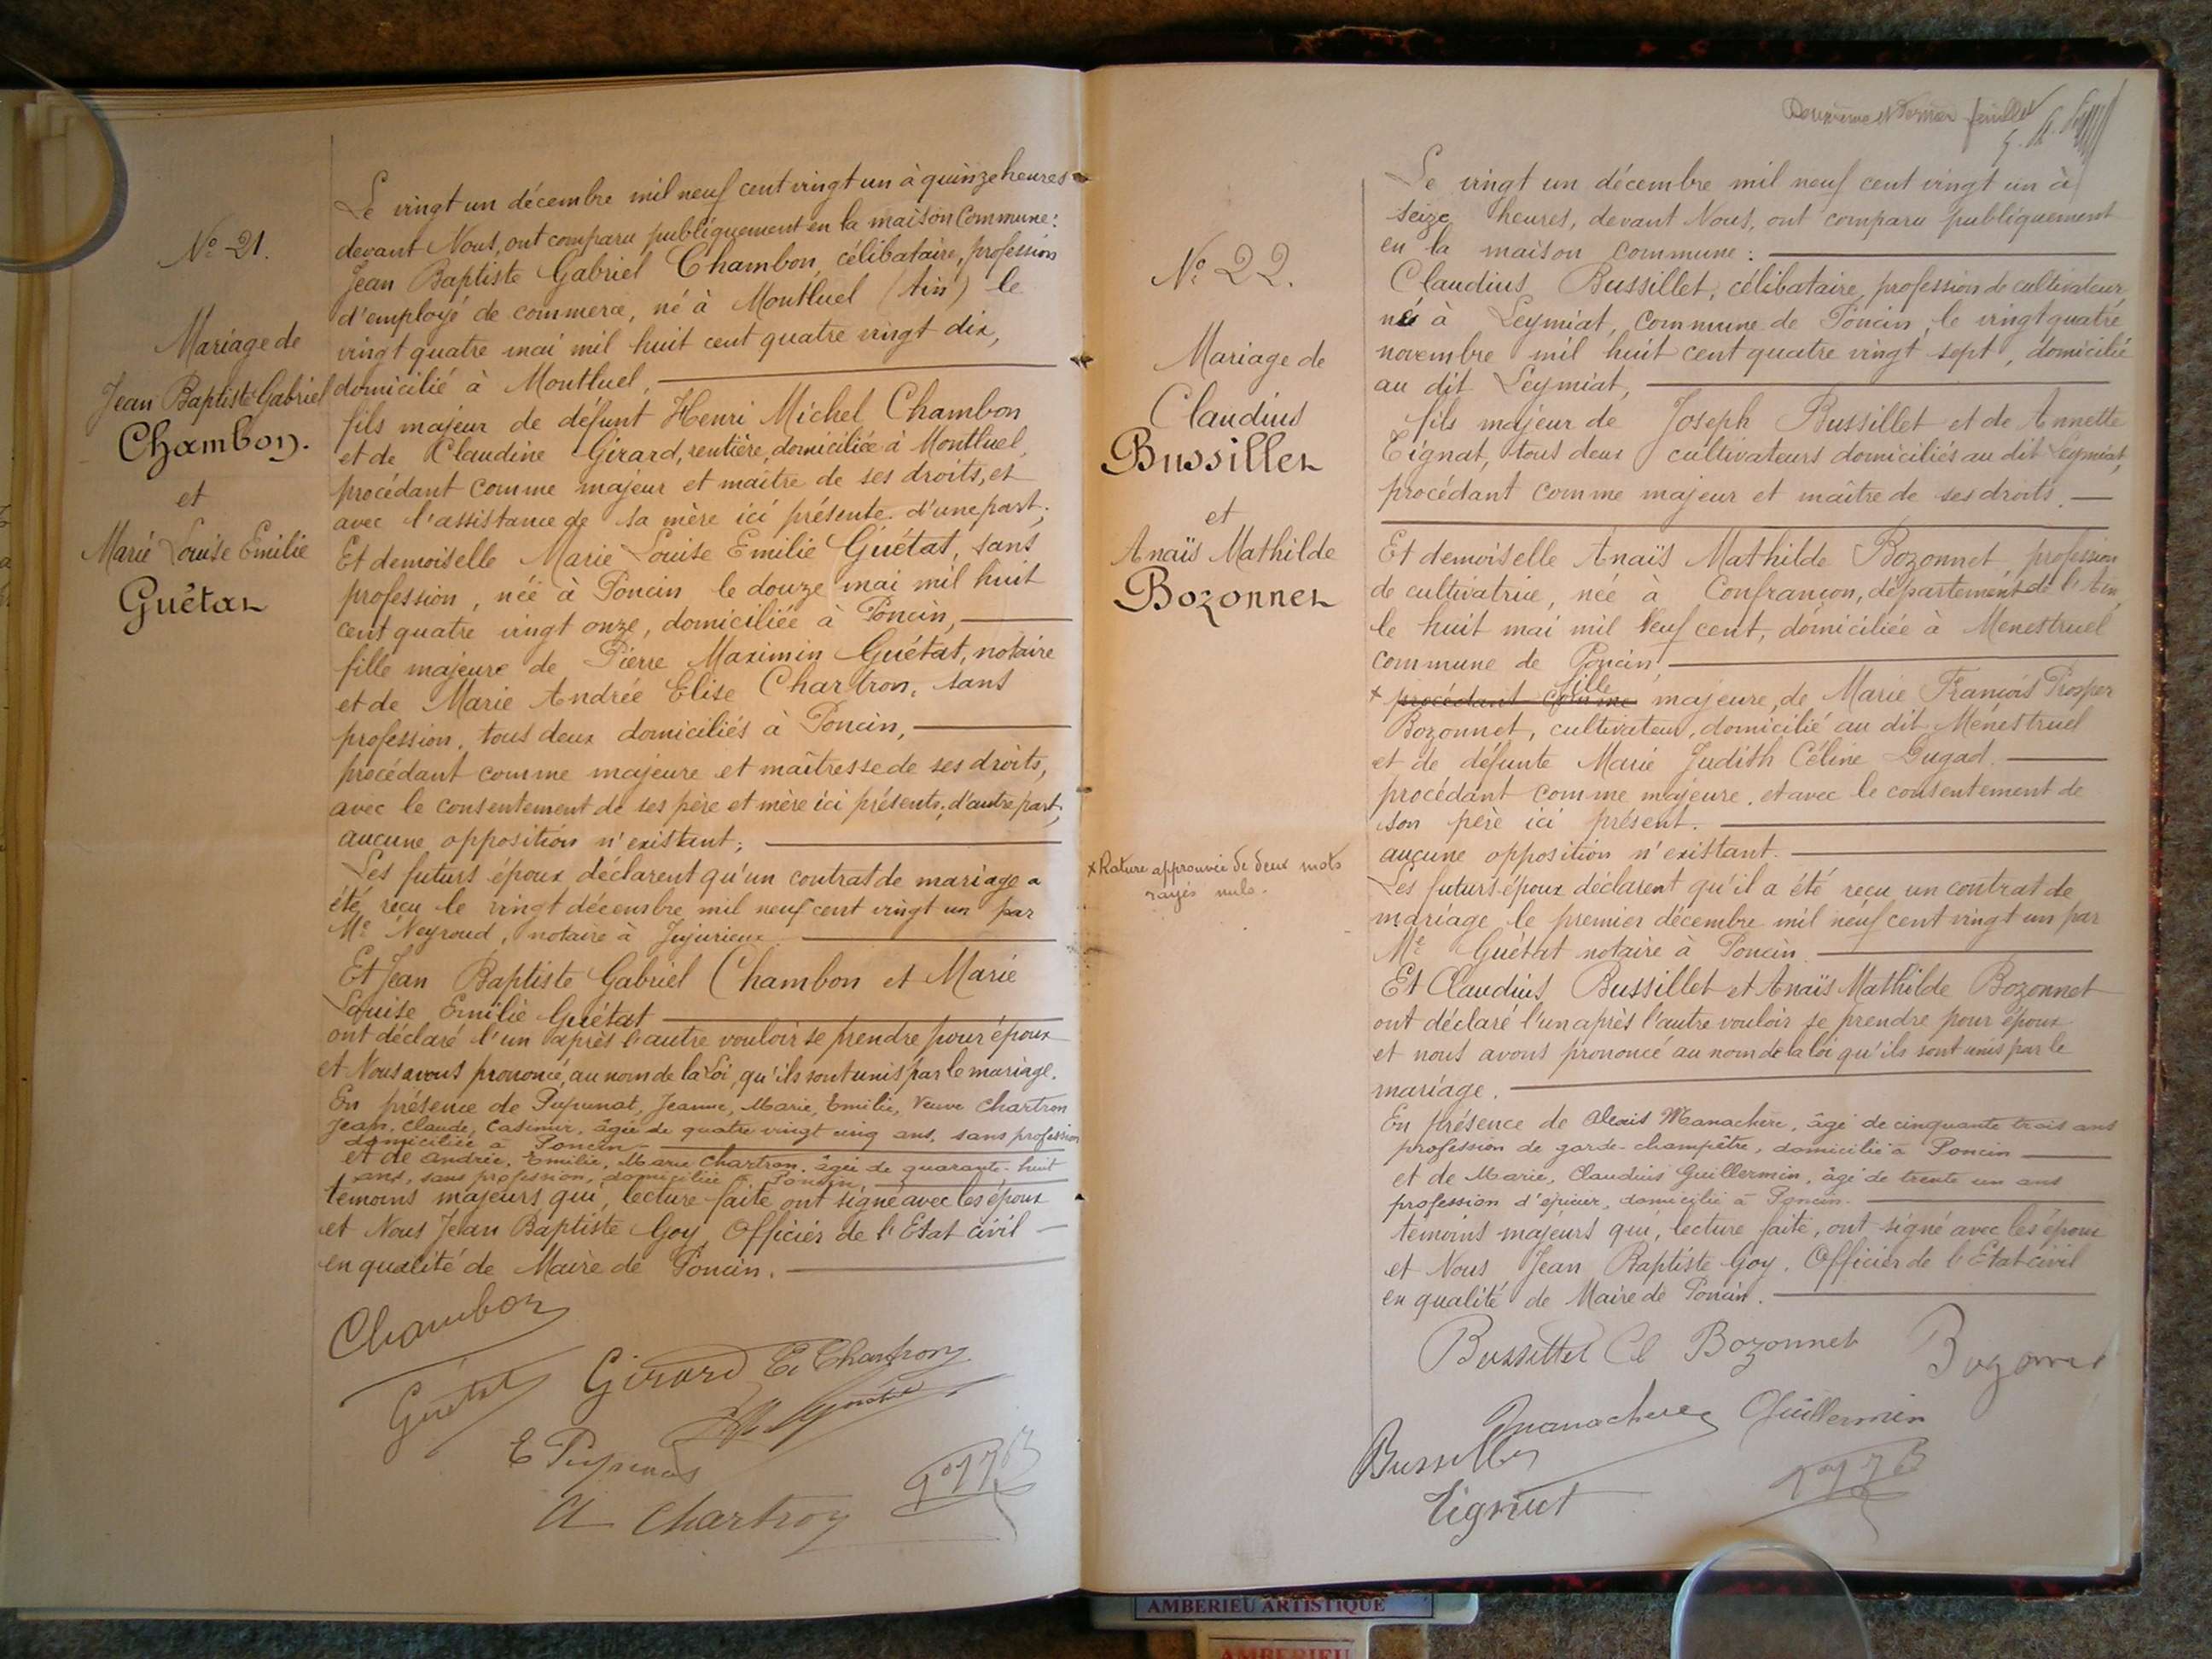 N° 21.
Mariage de
Jean Baptiste Gabriel
Chambon.
et
Marie Louise Emilie
Guétat
Le vingt un décembre mil neuf cent vingt un à quinze heures
devant Nous, ont comparu publiquement en la maison Commune:
Jean Baptiste Gabriel Chambon, célibataire, profession
d'employé de commerce, né à Montluel (Ain) le
vingt quatre mai mil huit cent quatre vingt dix,
domicilié à Montluel,
fils majeur de défunt Henri Michel Chambon
et de Claudine Girard, rentière, domiciliée à Montluel,
procédant comme majeur et maître de ses droits, et
avec l'assistance de sa mère ici présente. d'une part;
Et demoiselle Marie Louise Emilie Guétat, sans
profession, née à Poncin le douze mai mil huit
cent quatre vingt onze, domiciliée à Poncin,
fille majeure de Pierre Maximin Guétat, notaire
et de Marie Andrée Elise Chartron, sans
profession, tous deux domiciliés à Poncin,
procédant comme majeure et maîtresse de ses droits,
avec le consentement de ses père et mère ici présents; d'autre part;
aucune opposition n'existant;
Les futurs époux déclarent qu'un contrat de mariage a
été reçu le vingt décembre mil neuf cent vingt un par
Me Neyroud, notaire à Jujurieux
Et Jean Baptiste Gabriel Chambon et Marie
Louise Emilie Guétat
ont déclaré l'un après l'autre vouloir se prendre pour époux
et Nous avons prononcé, au nom de la Loi, qu'ils sont unis par le mariage.
En présence de Pupunat, Jeanne, Marie, Emilie, Veuve Chartron
Jean, Claude, Casimir, âgée de quatre vingt cinq ans, sans profession
domiciliée à Poncin
et de Andrée, Emilie, Marie Chartron, âgée de quarante-huit
ans, sans profession, domiciliée à Poncin,
témoins majeurs qui, lecture faite ont signé avec les époux
et Nous Jean Baptiste Goy Officier de l'Etat civil
en qualité de Maire de Poncin.
Chambon
Guétat Girard E. Chartron
E Pupunat
A Chartron
N° 22.
Mariage de
Claudius
Bussillet
et
Anaïs Mathilde
Bozonnet
x Rature approuvée de deux mots
rayés nuls.
Deuxième et dernier feuillet
Le vingt un décembre mil neuf cent vingt un à
seize heures, devant Nous, ont comparu publiquement
en la maison commune:
Claudius Bussillet, célibataire, profession de cultivateur
né à Leymiat, commune de Poncin, le vingt quatre
novembre mil huit cent quatre vingt sept, domicilié
au dit Leymiat,
fils majeur de Joseph Bussillet et de Annette
Tignat, tous deux cultivateurs domiciliés au dit Leymiat,
procédant comme majeur et maître de ses droits.
Et demoiselle Anaïs Mathilde Bozonnet, profession
de cultivatrice, née à Confrançon, département de l'Ain,
le huit mai mil neuf cent, domiciliée à Menestruel
commune de Poncin,
x procédant comme fille majeure, de Marie François Prosper
Bozonnet, cultivateur, domicilié au dit Ménestruel
et de défunte Marie Judith Céline Dugad.
procédant comme majeure, et avec le consentement de
son père ici présent.
aucune opposition n'existant.
Les futurs époux déclarent qu'il a été reçu un contrat de
mariage le premier décembre mil neuf cent vingt un par
Me Guétat notaire à Poncin.
Et Claudius Bussillet et Anaïs Mathilde Bozonnet
ont déclaré l'un après l'autre vouloir se prendre pour époux
et nous avons prononcé au nom de la loi qu'ils sont unis par le
mariage.
En présence de Alexis Manachère, âgé de cinquante trois ans
profession de garde-champêtre, domicilié à Poncin
et de Marie, Claudius Guillermin, âgé de trente un ans
profession d'épicier, domicilié à Poncin.
témoins majeurs qui, lecture faite, ont signé avec les époux
et Nous Jean Baptiste Goy. Officier de l'Etat civil
en qualité de Maire de Poncin.
Bussillet Cl Bozonnet Bozonnet
Manachère Guillermin
Bussillet
Tignat
AMBERIEU ARTISTIQUE
AMBERIEU